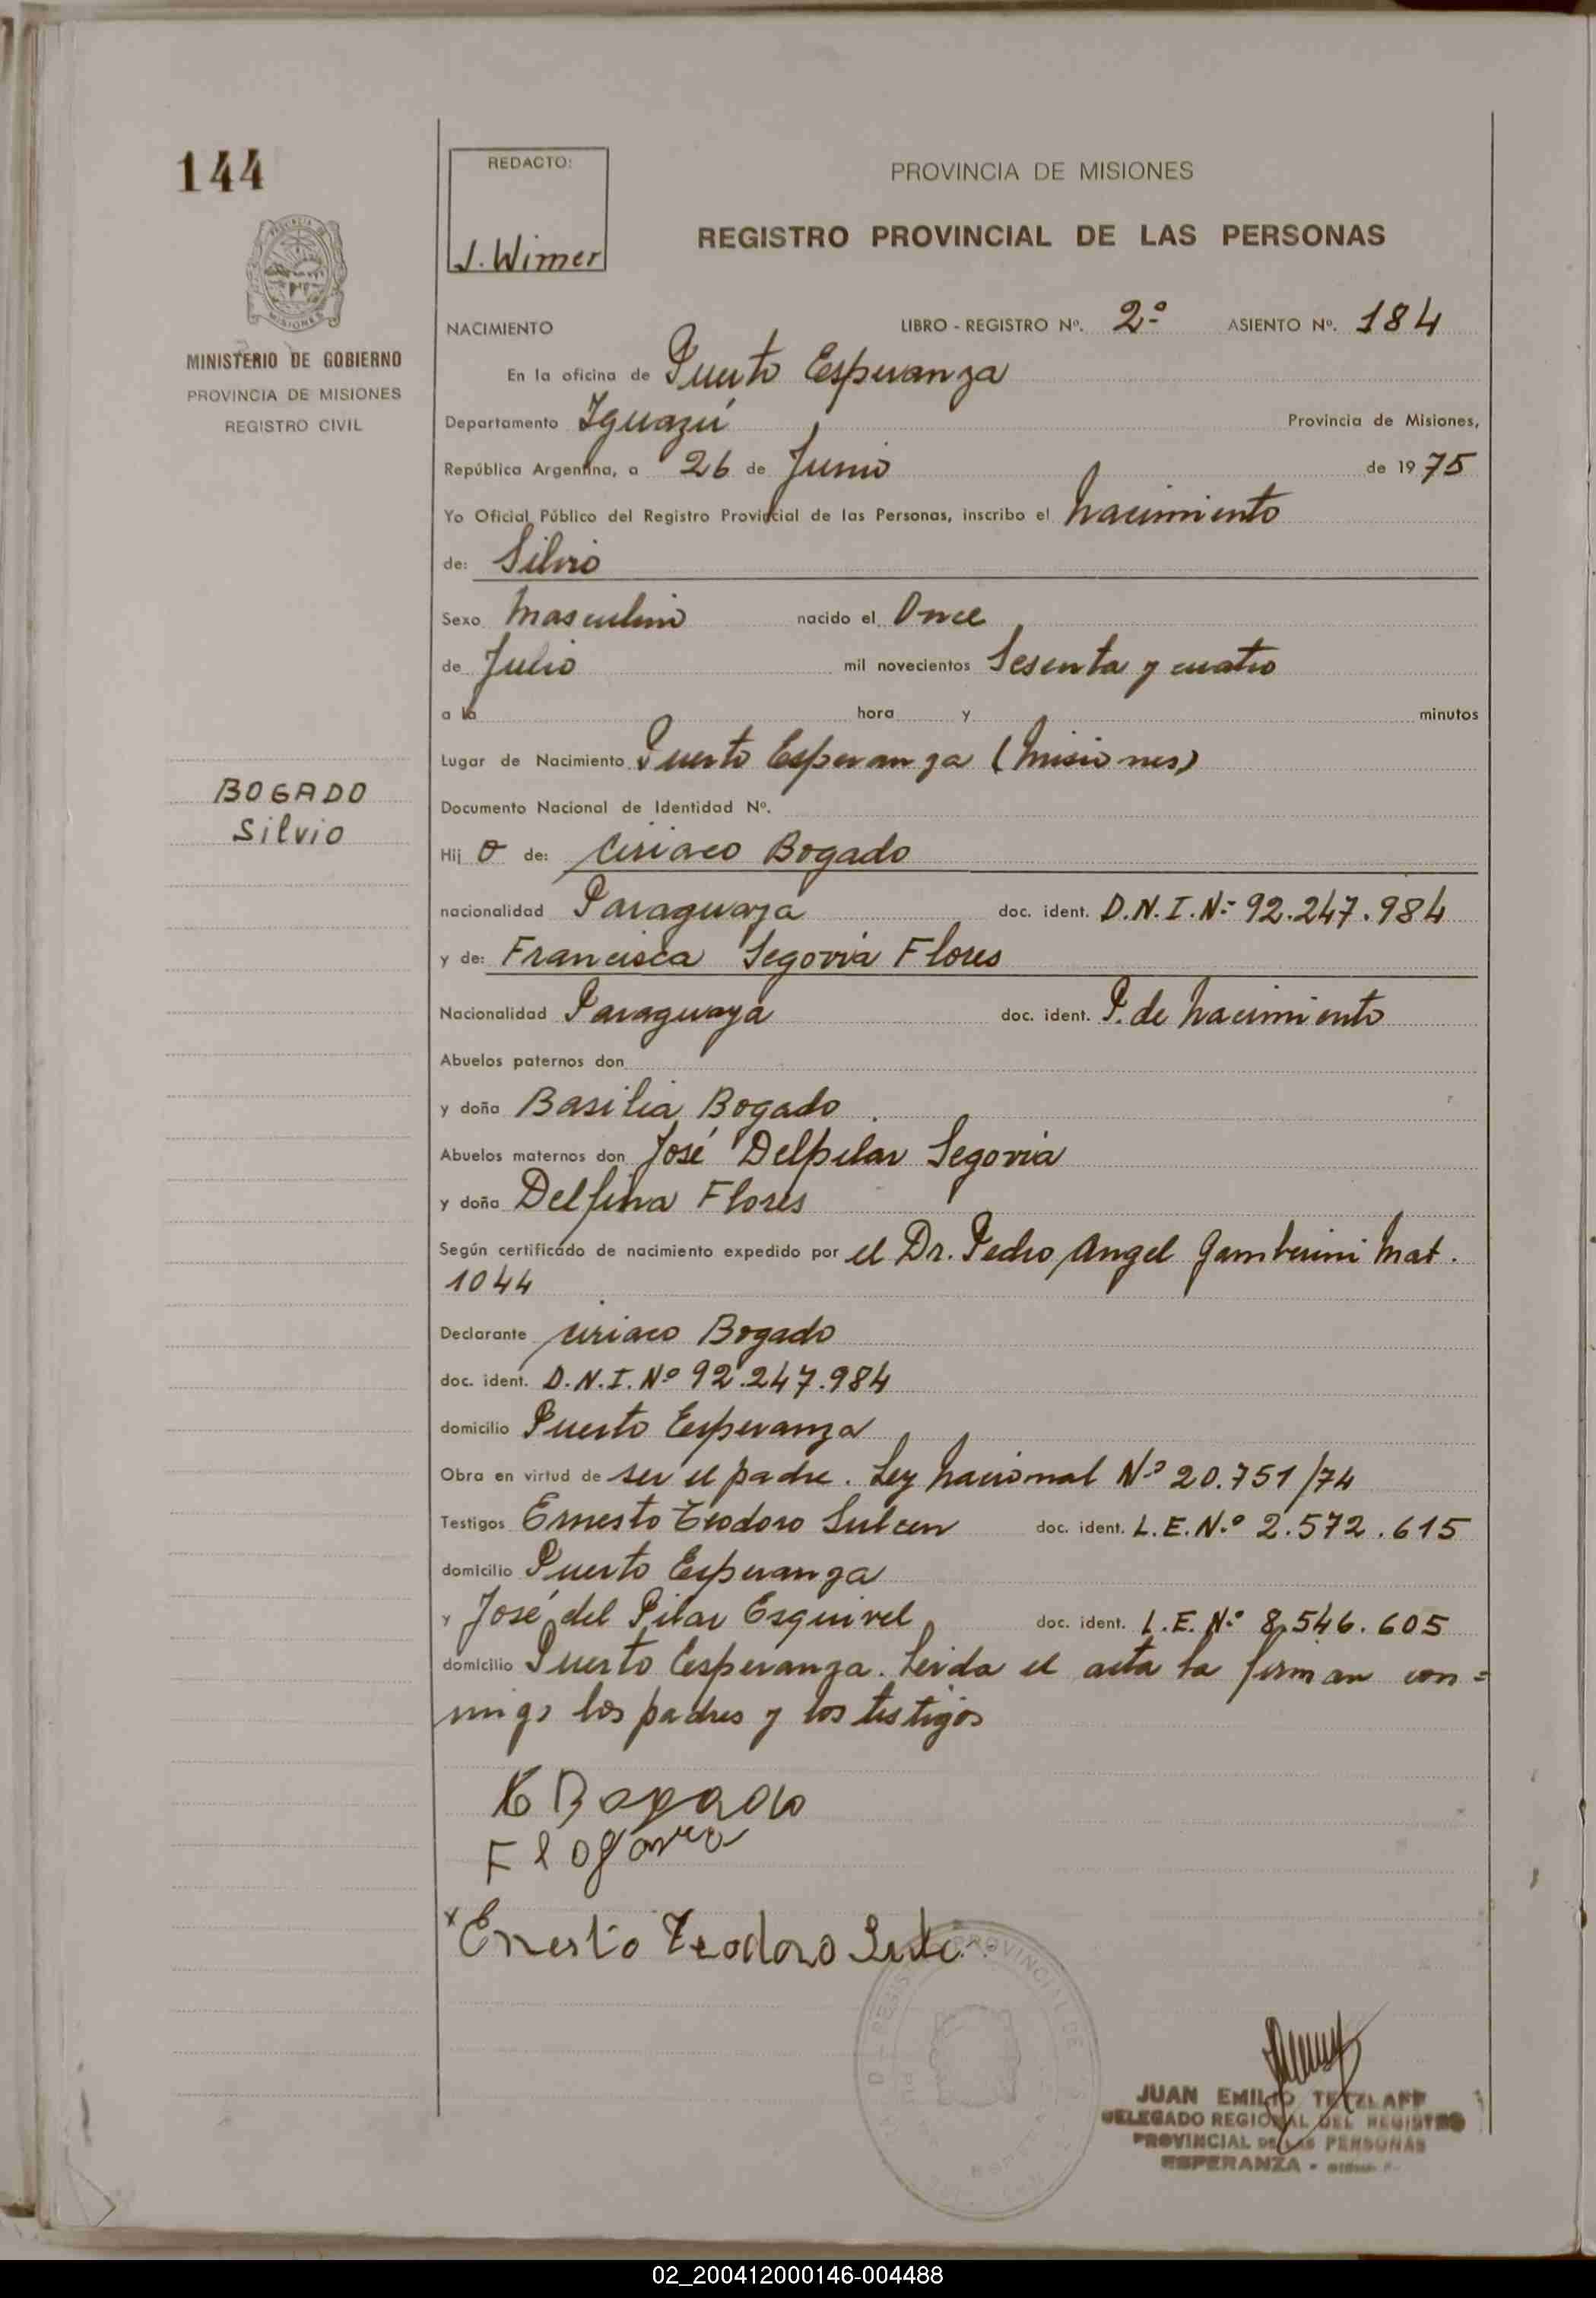 144
MINISTERIO DE GOBIERNO
PROVINCIA DE MISIONES
REGISTRO CIVIL
BOGADO
Silvio
REDACTO:
J. Wimer
PROVINCIA DE MISIONES
REGISTRO PROVINCIAL DE LAS PERSONAS
NACIMIENTO LIBRO - REGISTRO Nº. 2º ASIENTO Nº. 184
En la oficina de Puerto Esperanza
Departamento Iguazú Provincia de Misiones,
República Argentina, a 26 de Junio de 1975
Yo Oficial Público del Registro Provincial de las Personas, inscribo el nacimiento
de: Silvio
Sexo Masculino nacido el Once
de Julio mil novecientos Sesenta y cuatro
a la hora y minutos
Lugar de Nacimiento Puerto Esperanza (Misiones)
Documento Nacional de Identidad Nº.
Hij o de: Ciriaco Bogado
nacionalidad Paraguaya doc. ident. D.N.I. Nº 92.247.984
y de: Francisca Segovia Flores
Nacionalidad Paraguaya doc. ident. P. de nacimiento
Abuelos paternos don
y doña Basilia Bogado
Abuelos maternos don José Delpilar Segovia
y doña Delfina Flores
Según certificado de nacimiento expedido por el Dr. Pedro Angel Gamberini Mat.
1044
Declarante Ciriaco Bogado
doc. ident. D.N.I. Nº 92.247.984
domicilio Puerto Esperanza
Obra en virtud de ser el padre. Ley Nacional Nº 20.751/74
Testigos Ernesto Teodoro doc. ident. L.E. Nº 2.572.615
domicilio Puerto Esperanza
y José del Pilar Esquivel doc. ident. L.E. Nº 8.546.605
domicilio Puerto Esperanza. Leida el acta la firman con=
migo los padres y los testigos
Bogado
x Ernesto Teodoro
JUAN EMILIO TETZLAFF
DELEGADO REGIONAL DEL REGISTRO
PROVINCIAL DE LAS PERSONAS
ESPERANZA -
02_200412000146-004488